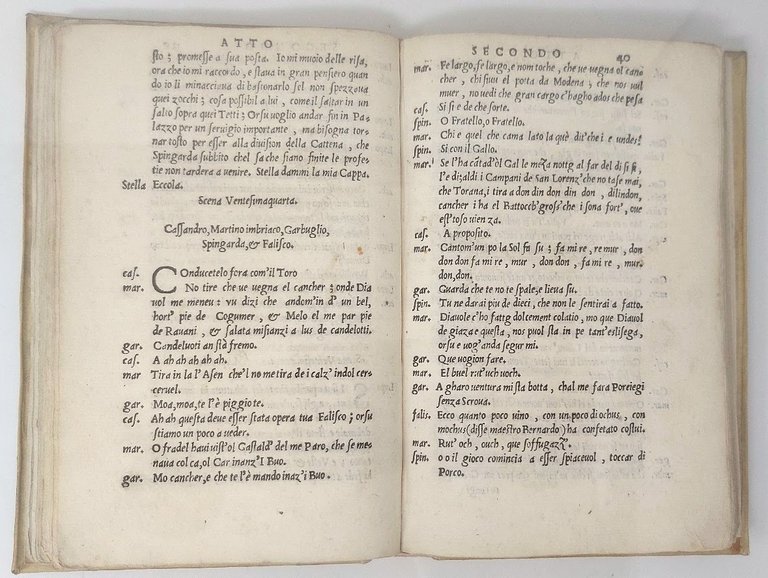 ATTO
sto ; promesse a sua posta. Io mi muoio delle risa,
ora che io mi raccordo , e staua in gran pensiero quan
do io li minacciaua di bastonarlo sel non spezzaua
quei zocchi ; cosa possibil a lui , come il saltar in un
salto sopra quei Tetti ; Orsu uoglio andar fin in Pa-
lazzo per un seruigio importante , ma bisogna tor-
nar tosto per esser alla diuision della Cattena , che
Spingarda subbito chel sa che siano finite le profe-
tie non tardera a uenire. Stella dammi la mia Cappa.
Stella Eccola.
Scena Ventesimaquarta.
Cassandro, Martino imbriaco, Garbuglio,
Spingarda, & Falisco.
cas. Conducetelo fora com'il Toro
mar. No tire che ue uegna el cancher ; onde Dia
uol me meneu : vu dizi che andom'in d' un bel,
hort' pie de Cogumer , & Melo el me par pie
de Rauani , & salata misianzi a lus de candelotti.
gar. Candeluoti an sté fremo.
cas. A ah ah ah ah.
mar Tira in la l'Asen che'l no me tira de i calz' indol cer-
ceruel.
gar. Moa, moa, te l'è piggiote.
cas. Ah ah questa deue esser stata opera tua Falisco ; orsu
stiamo un poco a ueder.
mar. O fradel hauiuist'ol Gastald' del me Paro, che se me-
naua col ca, ol Car inanz'I Buo.
gar. Mo cancher, e che te l'è mando inaz'i Buo.
SECONDO 40
mar. Fe largo, fe largo, e nom toche , che ue uegna ol canc
cher , chi fuui el porta da Modena ; che nos uul
muer , no uedi che gran cargo c'hagho ados che pesa
cas. Si si e de che sorte.
spin. O Fratello, o Fratello.
mar. Chi e quel che cama lato la què dit'che i e undes?
spin. Si con il Gallo.
mar. Se l'ha cātad'ol Gal le meza nottg al far del di si si ,
l'e dizaldi i Campani de San Lorenz'che no tase mai,
che Torana, i tira a don din don din don , dilindon,
cancher i ha el Battocch'gross'che i sona fort' , que
est'toso uien za.
cas. A proposito.
mar. Cantom'un po la Sol fa su ; fa mi re , re mur , don
don don fa mi re , mur , don don , fa mi re , mur.
don, don.
gar. Guarda che te no te spale, e lieua su.
spin. Tu ne darai piu de dieci, che non le sentirai a fatto.
mar. Diauole c'ho fattg dolcement colatio , mo que Diauol
de giaza e questa , nos puol sta in pe tant'eslisega ,
orsu e uog'anda segur mi.
gar. Que uogion fare.
mar. El buel rut'uch uoch.
gar. A gharo uentura mi sta botta , chal me fara Porciegi
senza Scroua.
falis. Ecco quanto poco uino , con un poco di ochus , con
mochus (disse maestro Bernardo) ha confetato costui.
mar. Rut' och , ouch , que soffugazz'.
spin. o o il gioco comincia a esser spiaceuol , toccar di
Porco.